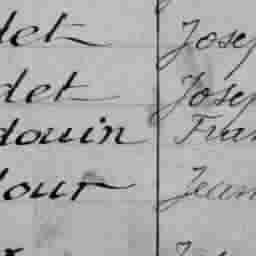 det Josep
det Josep
douin Fran
dour Jean